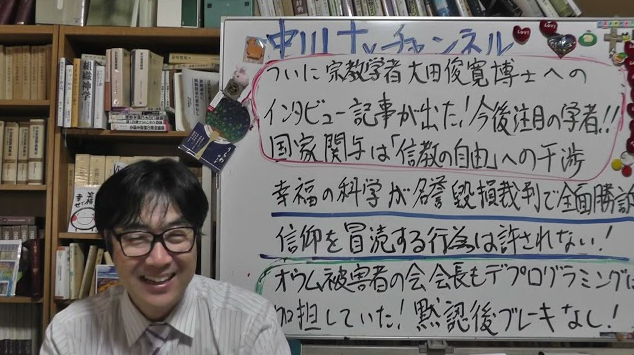 中川tvチャンネル
ついに宗教学者大田俊寛博士への
インタビュー記事が出た!今後注目の学者!!
国家関与は「信教の自由」への干渉
幸福の科学が名誉毀損裁判で全面勝訴
信仰を冒涜する行為は許されない!
オウム被害者の会会長もデプログラミングに
加担していた!黙認後ブレーキなし!
組織神学